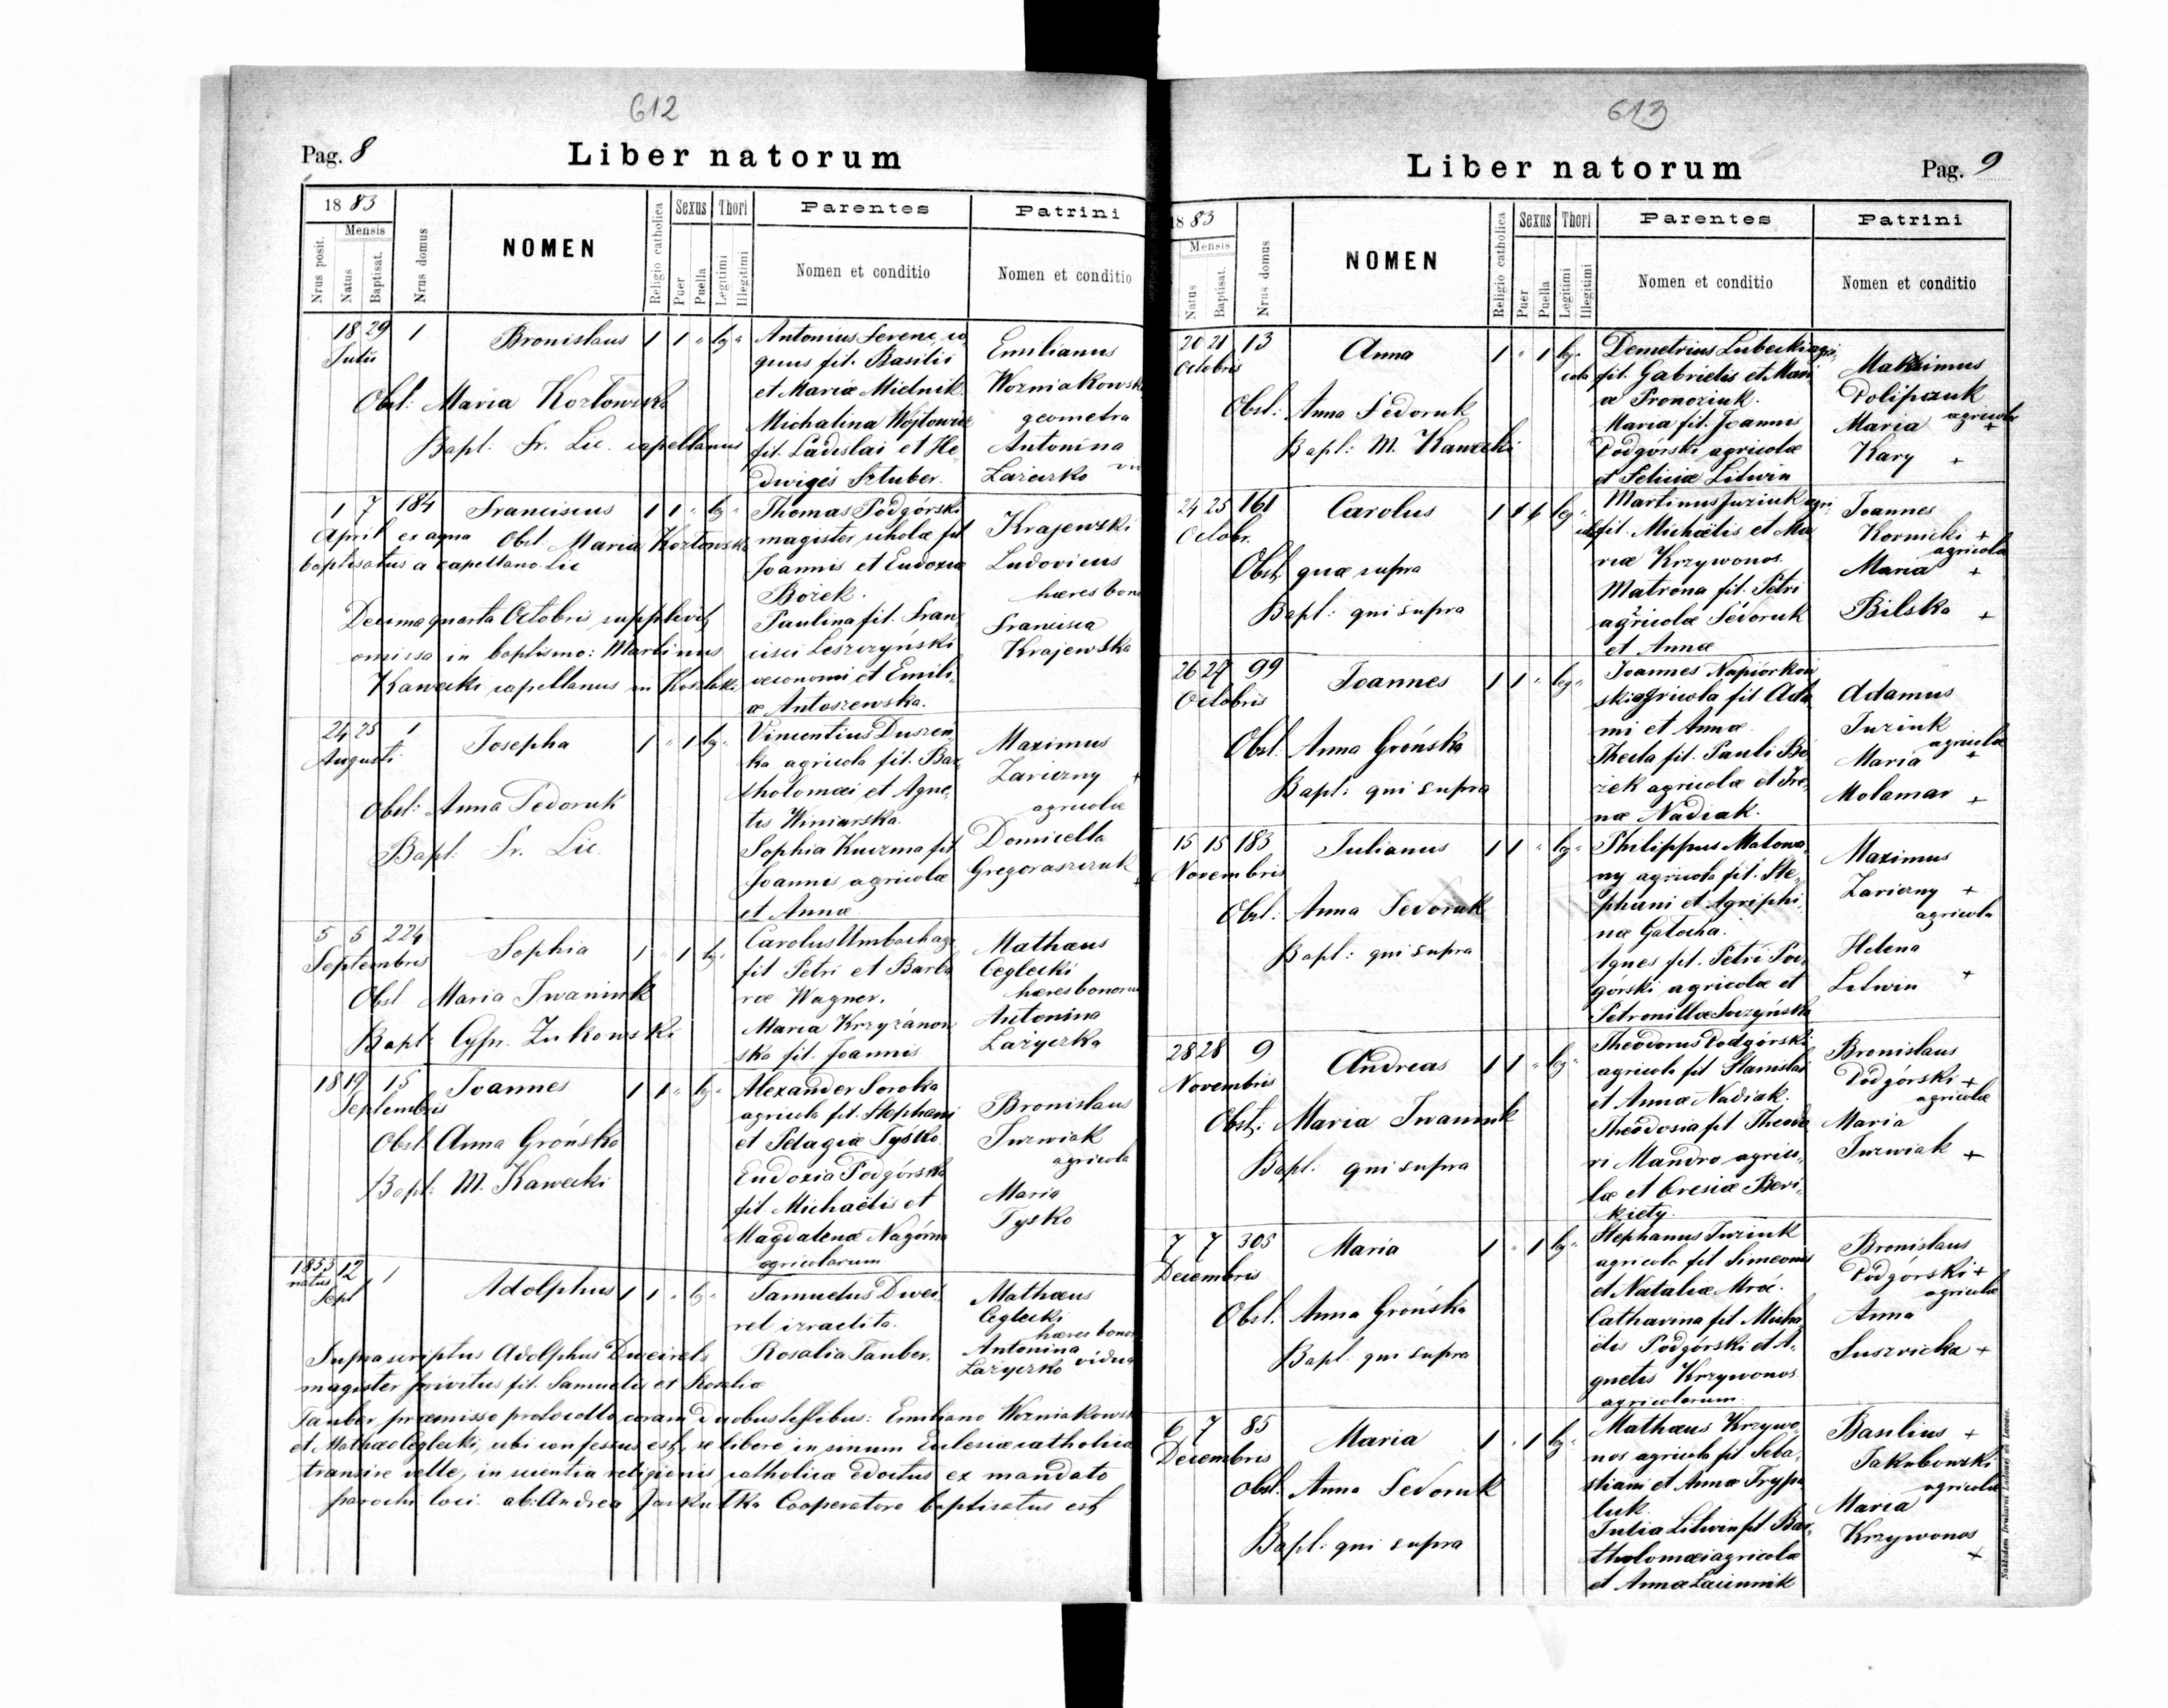 612
Pag. 8
Liber natorum
18 83
Mensis
Nrus posit.
Natus
Baptisat.
Nrus domus
NOMEN
Religio catholica
Sexus
Puer
Puella
Thori
Legitimi
Illegitimi
Parentes
Nomen et conditio
Patrini
Nomen et conditio
18 29 1 Bronislaus 1 1 " leg "
Julii
Obst: Maria Kozłowska
Bapt: Fr. Lic. capellanus
Antonius Serene, co
quus fil. Basilii
et Mariæ Mielnik.
Michalina Wojtowicz
fil. Ladislai et He-
dwigis Sztuber.
Emilianus
Wozniakowski
geometra
Antonina
Łażeczko
1 7 184 Franciscus 1 1 " leg "
April ex aqua Obst. Maria Kozłowska
baptisatus a capellano Lic
Decima quarta Octobris supplevit
omissa in baptismo: Martinus
Kawecki capellanus in
Thomas Podgórski
magister scholæ fil
Joannis et Eudoxiæ
Bożek.
Paulina fil. Fran-
cisci Leszczyński
œconomi et Emili-
æ Antoszewska.
Krajewski
Ludovicus
hæres bono
Francisca
Krajewska
24 25 1 Josepha 1 " 1 leg "
Augusti
Obst: Anna Fedoruk
Bapt: Fr. Lic.
Vincentius Duszeń-
ka agricola fil. Bar-
tholomæi et Agne-
tis Winiarska.
Sophia Kuczma fil
Joannis agricolæ
et Annæ
Maximus
Zariczny +
agricolæ
Domicella
Gregoraszczuk +
5 5 224 Sophia 1 " 1 leg "
Septembris
Obst Maria Iwaniuk
Bapt Cypr. Żukowski
Carolus Umbach agr
fil Petri et Barba
ræ Wagner.
Maria Krzyżanow
ska fil. Joannis
Mathæus
Ceglecki
hæres bonorum
Antonina
Łażyczka
18 19 15 Joannes 1 1 " leg "
Septembris
Obst. Anna Grońska
Bapt: M. Kawecki
Alexander Soroka
agricola fil. Stephani
et Pelagiæ Tyśko
Eudoxia Podgórska
fil Michaëlis et
Magdalenæ Nagórna
agricolarum
Bronislaus
Jurwiak
agricola
Maria
Tysko
1855 12 1 Adolphus 1 1 " leg "
natus
Sept
Samuelus Dwei-
rel izraelita.
Rosalia Tauber.
Mathæus
Ceglecki
hæres bonor
Antonina
Łażyczko vidua
Suprascriptus Adolphus Dweirels
magister privatus fil. Samuelis et Rosaliæ
Tauber, præmisso protocollo coram duobus testibus: Emiliano Wozniakowski
et Mathæo Ceglecki, ubi confessus est, se libere in sinum Ecclesiæ catholicæ
transire velle, in scientia religionis catholicæ edoctus ex mandato
parochi loci ab: Andrea Cooperatore baptisatus est
613
Liber natorum
Pag. 9
18 83
Mensis
Natus
Baptisat.
Nrus domus
NOMEN
Religio catholica
Sexus
Puer
Puella
Thori
Legitimi
Illegitimi
Parentes
Nomen et conditio
Patrini
Nomen et conditio
20 21 13 Anna 1 " 1 leg "
Octobris
Obst: Anna Fedoruk
Bapt: M. Kawecki
Demetrius Lubecki agri-
cola fil. Gabrielis et Mari
æ Pronoziuk.
Maria fil. Joannis
Podgórski agricolæ
et Feliciæ Litwin
Makximus
Polipczuk
agricolæ +
Maria
Kary +
24 25 161 Carolus 1 1 leg "
Octobr.
Obst. quæ supra
Bapt: qui supra
Martinus Juziuk agri-
cola fil. Michaëlis et Ma
riæ Krzywonos.
Matrona fil. Petri
agricolæ Fedoruk
et Annæ
Joannes
Kornicki +
agricolæ
Maria +
Bilska +
26 27 99 Joannes 1 1 " leg "
Octobris
Obst. Anna Grońska
Bapt: qui supra
Joannes Napiorkow
ski agricola fil Ada
mi et Annæ
Thecla fil. Pauli Bo-
żek agricolæ et Ire-
næ Nadiak.
Adamus
Juziuk
agricolæ
Maria +
Molamar +
15 15 183 Julianus 1 1 " leg "
Novembris
Obst: Anna Fedoruk
Bapt: qui supra
Philippus Malowa-
ny agricola fil. Ste-
phani et Agriphi-
næ Gałocha.
Agnes fil. Petri Pod-
górski agricolæ et
Petronillæ Soczyńska
Maximus
Zariczny +
agricola
Helena
Litwin +
28 28 9 Andreas 1 1 " leg "
Novembris
Obst: Maria Iwaniuk
Bapt: qui supra
Theodorus Podgórski
agricola fil Stanislai
et Annæ Nadiak.
Theodosia fil Theodo
ri Mandro agrico-
læ et Oresiæ Beri-
kiety.
Bronislaus
Podgórski +
agricolæ
Maria
Jurwiak +
7 7 305 Maria 1 " 1 leg "
Decembris
Obst. Anna Grońska
Bapt. qui supra
Stephanus Juziuk
agricola fil Simeonis
et Nataliæ Mroć.
Catharina fil Micha-
ëlis Podgórski et A-
gnetis Krzywonos
agricolarum
Bronislaus
Podgórski +
agricolæ
Anna
Suszvicka +
6 7 85 Maria 1 " 1 leg "
Decembris
Obst. Anna Fedoruk
Bapt: qui supra
Mathæus Krzywo-
nos agricola fil Seba-
stiani et Annæ Trypa
luk.
Julia Litwin fil. Bar-
tholomæi agricolæ
et Annæ Laiunnik
Basilius +
Jakubowski
agricolæ
Maria
Krzywonos +
Nakładem Drukarni Ludowej we Lwowie.